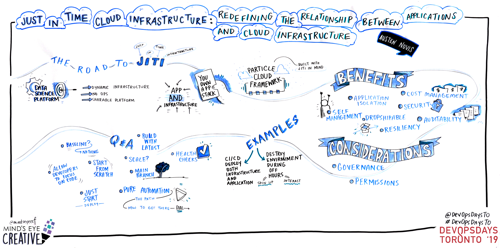 JUST IN TIME CLOUD INFRASTRUCTURE: REDEFINING THE RELATIONSHIP BETWEEN APPLICATIONS
AND CLOUD INFRASTRUCTURE
THE ROAD TO JITI
JUST IN TIME INFRASTRUCTURE
DATA SCIENCE PLATFORM
DYNAMIC INFRASTRUCTURE
PLATFORM
APP AND INFRASTRUCTURE
YOU OWN APP
PARTICLE CLOUD FRAMEWORK
BUILT WITH JITI IN MIND
BENEFITS
APPLICATION ISOLATION
COST MANAGEMENT
SELF MANAGEMENT
DROPSHIPABLE
SECURITY
AUDITABILITY
RESILIENCY
CONSIDERATIONS
GOVERNANCE
PERMISSIONS
Q&A
BASELINE?
ALLOW DEVELOPERS TO FOCUS ON CODE
START FROM SCRATCH
JUST START
BUILD WITH LATEST
SCALE?
MAIN BRANCH
HEALTH CHECKS
PURE AUTOMATION
HOW TO GET THERE
EXAMPLES
CI/CD DEPLOY BOTH INFRASTRUCTURE AND APPLICATION
DESTROY ENVIRONMENT DURING OFF HOURS
MIND'S EYE
CREATIVE
@DevOpsDaysTO
#DevOpsDaysTO
DEVOPSDAYS
TORONTO '19